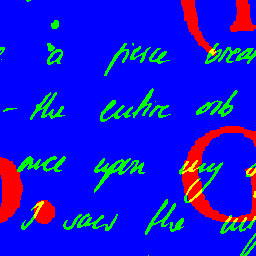 a fierce brea
- the entire orb
once upon my
I saw the